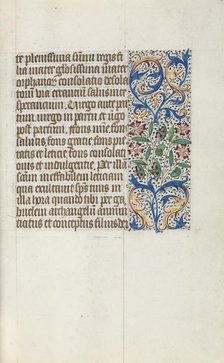 te plenissima sum̄i regis fi
lia mater gl̄osissima mater
orphanoꝝ consolatio desola
toꝝ via errancium salus in te
sperancium. Virgo ante par
tum, virgo in partu et v̄go
post partum, fons mīe fons
salutis, fons gratie fons pie
tatis et leticie fons consolati
onis et indulgentie, Per illa
sc̄am ineffabilem leticiam
qua exultauit sp̄s tuus in
illa hora quando tibi per ga
brielem archangelū annun
tiatus et conceptus filius dei